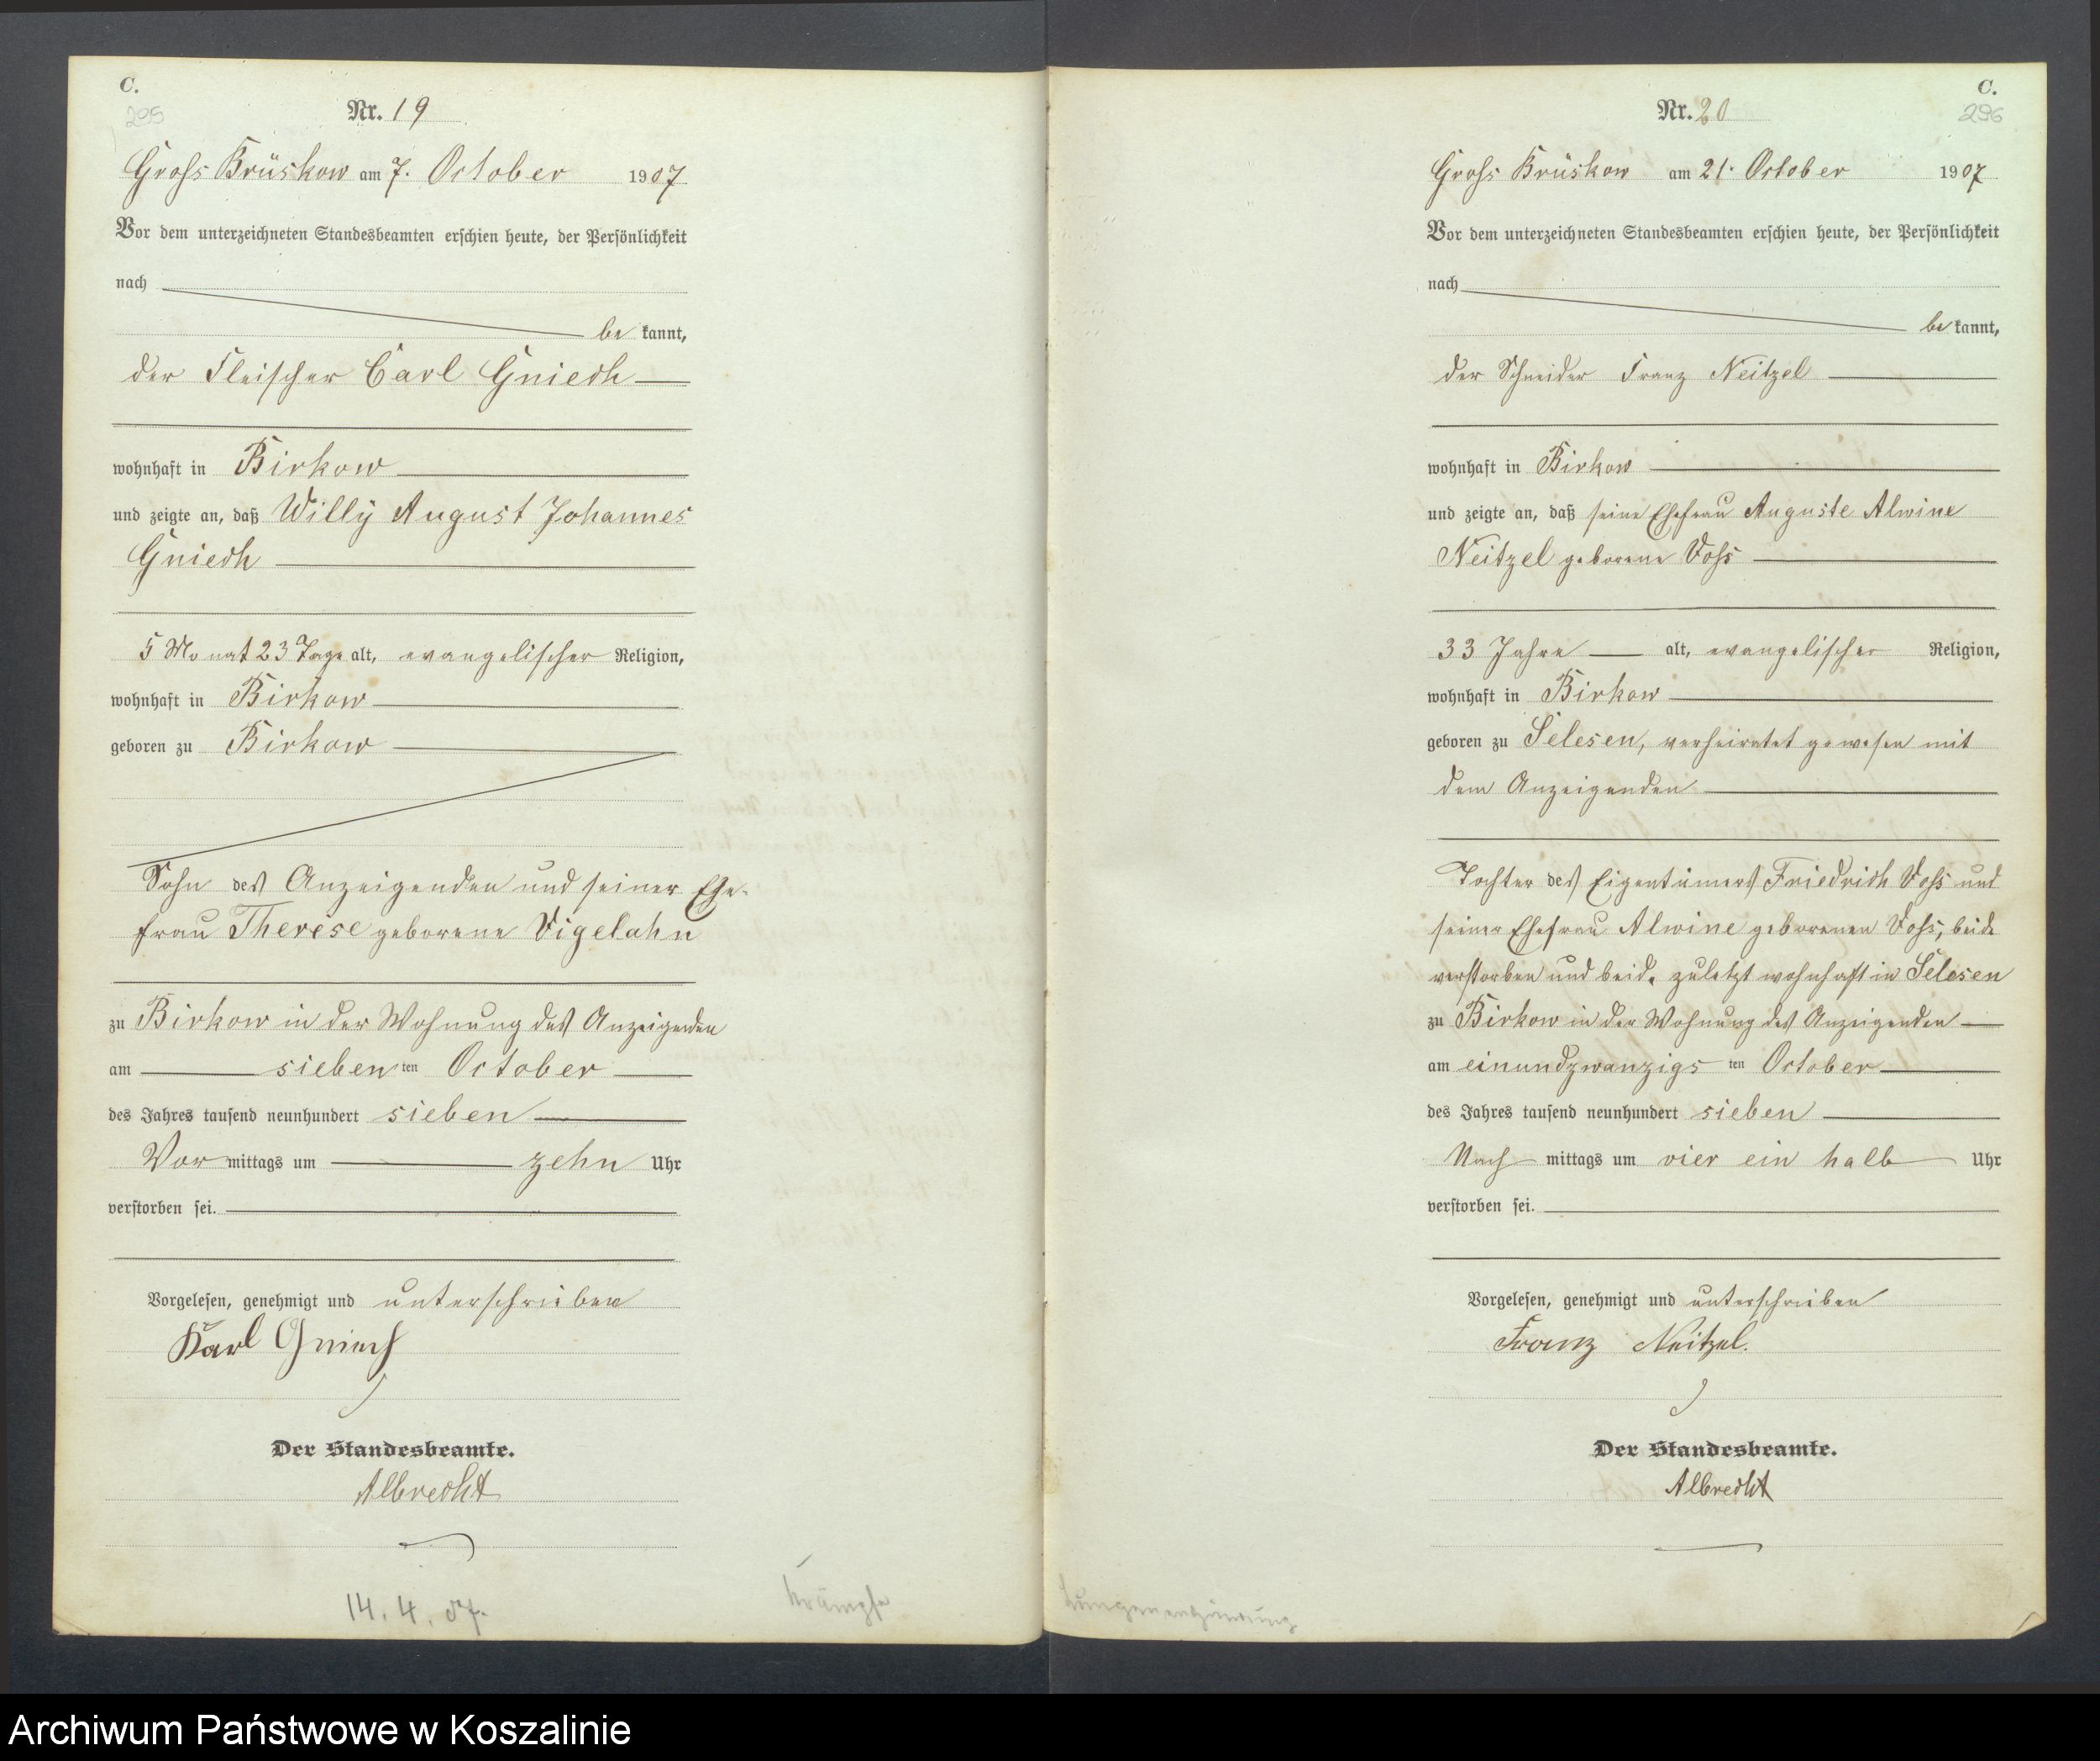 C.
295
Nr. 19
Gross Brüskow am 7. October 1907
Vor dem unterzeichneten Standesbeamten erschien heute, der Persönlichkeit
nach
be kannt,
der Fleischer Carl Gniech
wohnhaft in Birkow
und zeigte an, daß Willy August Johannes
Gniech
5 Monat 23 Tage alt, evangelischer Religion,
wohnhaft in Birkow
geboren zu Birkow
Sohn des Anzeigenden und seiner Ehe-
frau Therese geborene Vigelahn
zu Birkow in der Wohnung des Anzeigenden
am sieben ten October
des Jahres tausend neunhundert sieben
Vor mittags um zehn Uhr
verstorben sei.
Vorgelesen, genehmigt und unterschrieben
Karl Gniech
Der Standesbeamte.
Albrecht
14. 4. 07.
Krämpfe
C.
296
Nr. 20
Gross Brüskow am 21. October 1907
Vor dem unterzeichneten Standesbeamten erschien heute, der Persönlichkeit
nach
be kannt,
der Schneider Franz Neitzel
wohnhaft in Birkow
und zeigte an, daß seine Ehefrau Auguste Alwine
Neitzel geborene Voss
33 Jahre alt, evangelischer Religion,
wohnhaft in Birkow
geboren zu Selesen, verheiratet gewesen mit
dem Anzeigenden
Tochter des Eigentümers Friedrich Voss und
seiner Ehefrau Alwine geborenen Voss, beide
verstorben und beide zuletzt wohnhaft in Selesen
zu Birkow in der Wohnung des Anzeigenden
am einundzwanzigs ten October
des Jahres tausend neunhundert sieben
Nach mittags um vier ein halb Uhr
verstorben sei.
Vorgelesen, genehmigt und unterschrieben
Franz Neitzel.
Der Standesbeamte.
Albrecht
Lungenentzündung
Archiwum Państwowe w Koszalinie